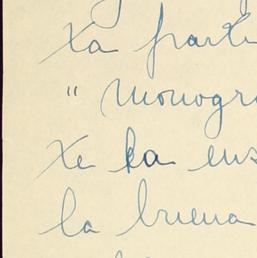 La parti
" monogra
Xe la ens
la buena